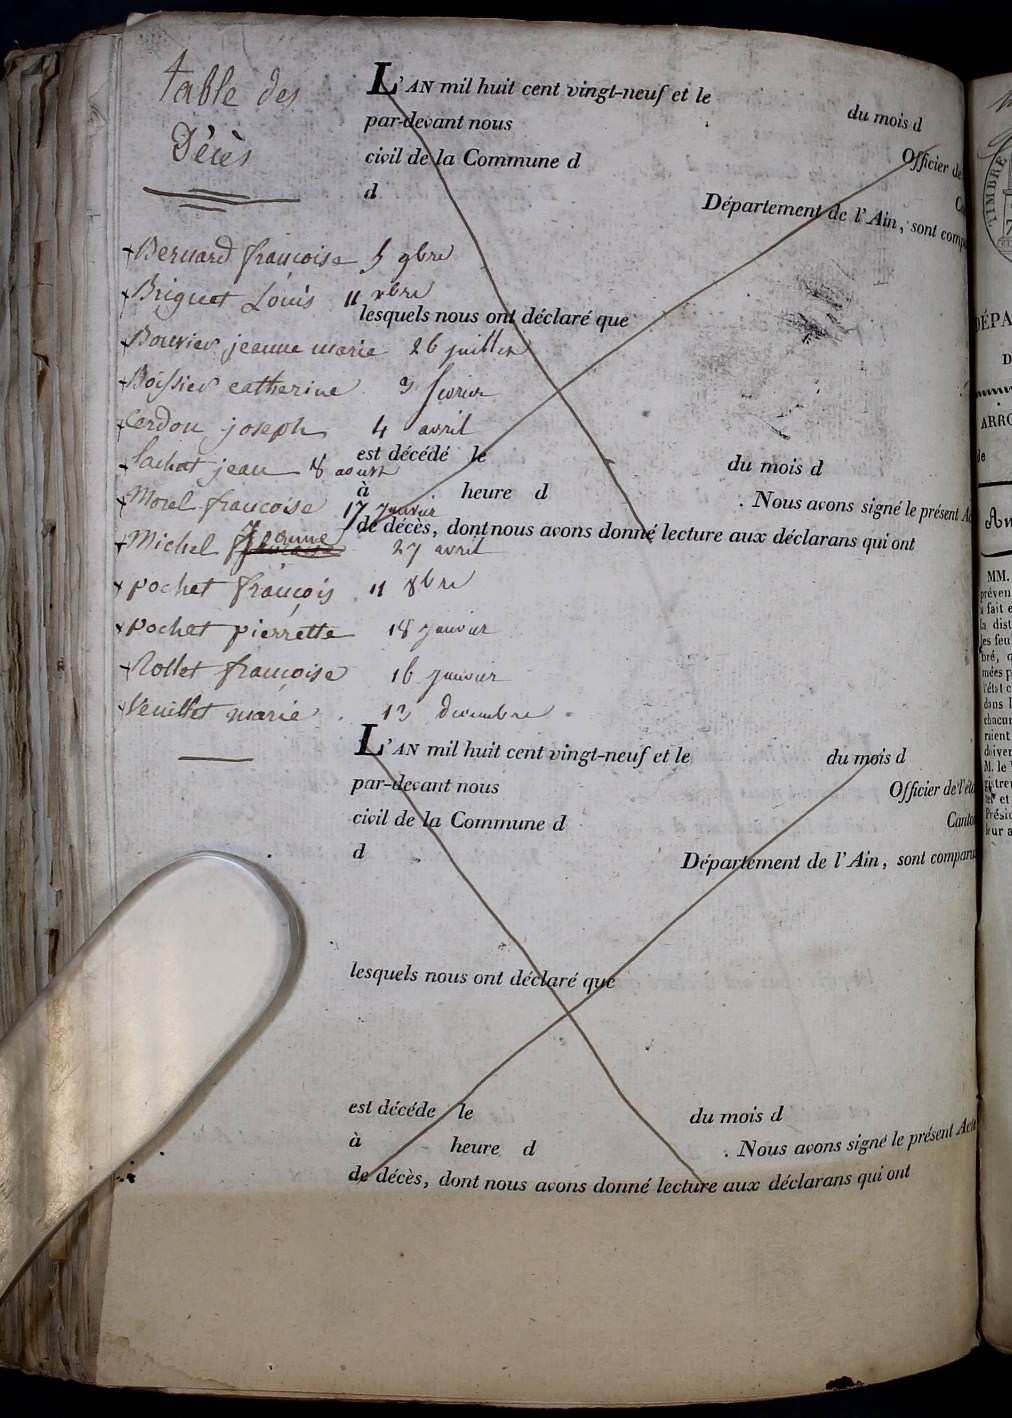 table des
Décès
L'AN mil huit cent vingt-neuf et le du mois d
par-devant nous Officier de
civil de la Commune d
d Département de l'Ain, sont comp
Bernard françoise 5 9bre
Briguet Louis 11 xbre
lesquels nous ont déclaré que
Bouvier jeanne marie 26 juillet
Boissier catherine 3 fevrier
Cerdon joseph 4 avril
est décédé le du mois d
Lachat jean 8 aoust
à heure d . Nous avons signé le présent Ac
Morel françoise 17 janvier
de décès, dont nous avons donné lecture aux déclarans qui ont
Michel Jeanne 27 avril
pochet françois 11 8bre
pochet pierrette 18 janvier
Rollet françoise 16 janvier
Veuillet marie 13 decembre
L'AN mil huit cent vingt-neuf et le du mois d
par-devant nous Officier de l'éta
civil de la Commune d Canton
d Département de l'Ain, sont comparu
lesquels nous ont déclaré que
est décédé le du mois d
à heure d . Nous avons signé le présent Acte
de décès, dont nous avons donné lecture aux déclarans qui ont
TIMBRE
7
DÉPA
D
ARRO
de
An
MM.
préven
fait e
la dist
les feu
bré, q
mées p
l'état c
dans l
chacun
roient
doiven
M. le
gistre
et
Présid
leur a